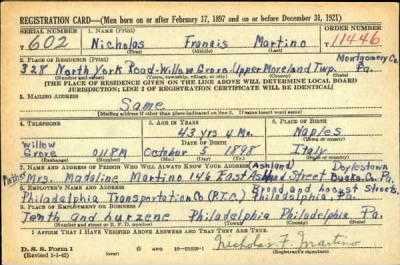 REGISTRATION CARD—(Men born on or after February 17, 1897 and on or before December 31, 1921)
SERIAL NUMBER
1. NAME (Print)
ORDER NUMBER
V602
Nicholas Francis Martino
11446
(First) (Middle) (Last)
2. PLACE OF RESIDENCE (Print)
Montgomery Co.
328 North York Road-Willow Grove-Upper Moreland Twp. Pa.
(Number and street) (Town, township, village, or city) (County) (State)
[THE PLACE OF RESIDENCE GIVEN ON THE LINE ABOVE WILL DETERMINE LOCAL BOARD
JURISDICTION; LINE 2 OF REGISTRATION CERTIFICATE WILL BE IDENTICAL]
3. MAILING ADDRESS
Same
[Mailing address if other than place indicated on line 2. If same insert word same]
4. TELEPHONE
5. AGE IN YEARS
6. PLACE OF BIRTH
43 yrs. 4 Mo.
Naples
Willow
DATE OF BIRTH
(Town or county)
Grove 0118M
October 5 1898
Italy
(Exchange) (Number)
(Mo.) (Day) (Yr.)
(State or country)
7. NAME AND ADDRESS OF PERSON WHO WILL ALWAYS KNOW YOUR ADDRESS
(Ashland)
Doylestown
Mother
Mrs. Madaline Martino 146 East Street Bucks Co. Pa.
8. EMPLOYER'S NAME AND ADDRESS
Broad and Locust Streets
Philadelphia Transportation Co. (P.T.C.) Philadelphia, Pa.
9. PLACE OF EMPLOYMENT OR BUSINESS
Tenth and Luzerne Philadelphia Philadelphia Pa.
(Number and street or R. F. D. number) (Town) (County) (State)
I AFFIRM THAT I HAVE VERIFIED ABOVE ANSWERS AND THAT THEY ARE TRUE.
D. S. S. Form 1
(Revised 1-1-42)
(over)
Nicholas F. Martino
(Registrant's signature)